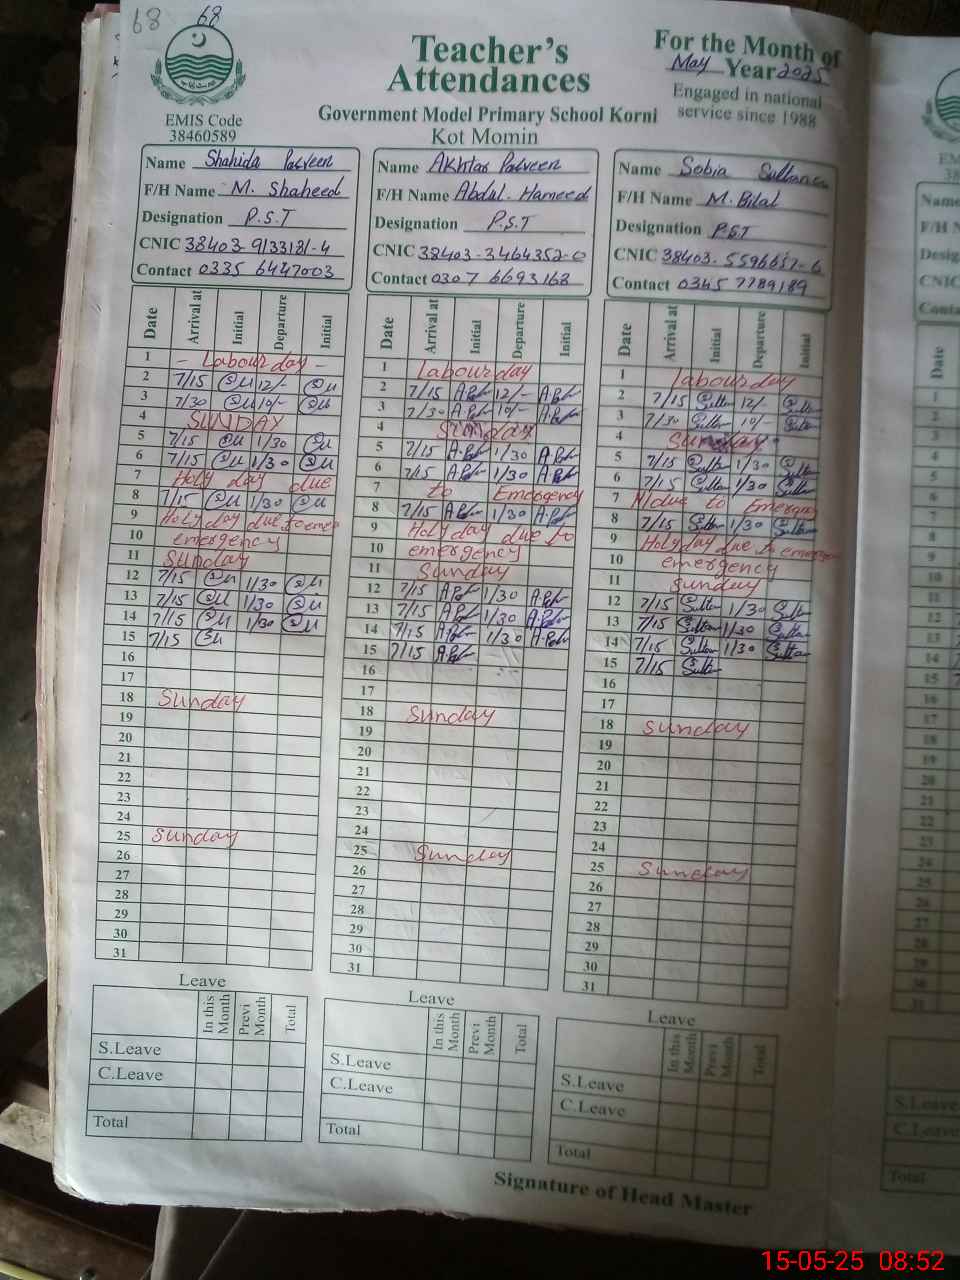 68 68
Teacher's
Attendances
For the Month of
May Year 2025
Engaged in national
service since 1988
Government Model Primary School Korni
Kot Momin
EMIS Code
38460589
Name Shahida Parveen
F/H Name M. Shaheed
Designation P.S.T
CNIC 38403-9133181-4
Contact 0335 6447003
Date Arrival at Initial Departure Initial
1 - Labour day -
2 7/15 12/-
3 7/30 10/-
4 SUNDAY
5 7/15 1/30
6 7/15 1/30
7 Holy day due
8 7/15 1/30
9 Holy day due to emer
10 emergency
11 Sunday
12 7/15 1/30
13 7/15 1/30
14 7/15 1/30
15 7/15
16
17
18 Sunday
19
20
21
22
23
24
25 Sunday
26
27
28
29
30
31
Leave
In this Month Previ Month Total
S.Leave
C.Leave
Total
Name Akhtar Parveen
F/H Name Abdul. Hameed
Designation P.S.T
CNIC 38403-3464352-0
Contact 0307 6693168
Date Arrival at Initial Departure Initial
1 Labour day
2 7/15 12/-
3 7/30 10/-
4 Sunday
5 7/15 1/30
6 7/15 1/30
7 to Emergency
8 7/15 1/30
9 Holy day due to
10 emergency
11 Sunday
12 7/15 1/30
13 7/15 1/30
14 7/15 1/30
15 7/15
16
17
18 Sunday
19
20
21
22
23
24
25 Sunday
26
27
28
29
30
31
Leave
In this Month Previ Month Total
S.Leave
C.Leave
Total
Name Sobia Sultana
F/H Name M. Bilal
Designation P.S.T
CNIC 38403-5596657-6
Contact 0345 7789189
Date Arrival at Initial Departure Initial
1 Labour day
2 7/15 Sultan 12/- Sultan
3 7/30 Sultan 10/- Sultan
4 Sunday
5 7/15 Sultan 1/30 Sultan
6 7/15 Sultan 1/30 Sultan
7 due to Emergency
8 7/15 Sultan 1/30 Sultan
9 Holy day due to emergen
10 emergency
11 Sunday
12 7/15 Sultan 1/30 Sultan
13 7/15 Sultan 1/30 Sultan
14 7/15 Sultan 1/30 Sultan
15 7/15 Sultan
16
17
18 Sunday
19
20
21
22
23
24
25 Sunday
26
27
28
29
30
31
Leave
In this Month Previ Month Total
S.Leave
C.Leave
Total
Signature of Head Master
15-05-25 08:52